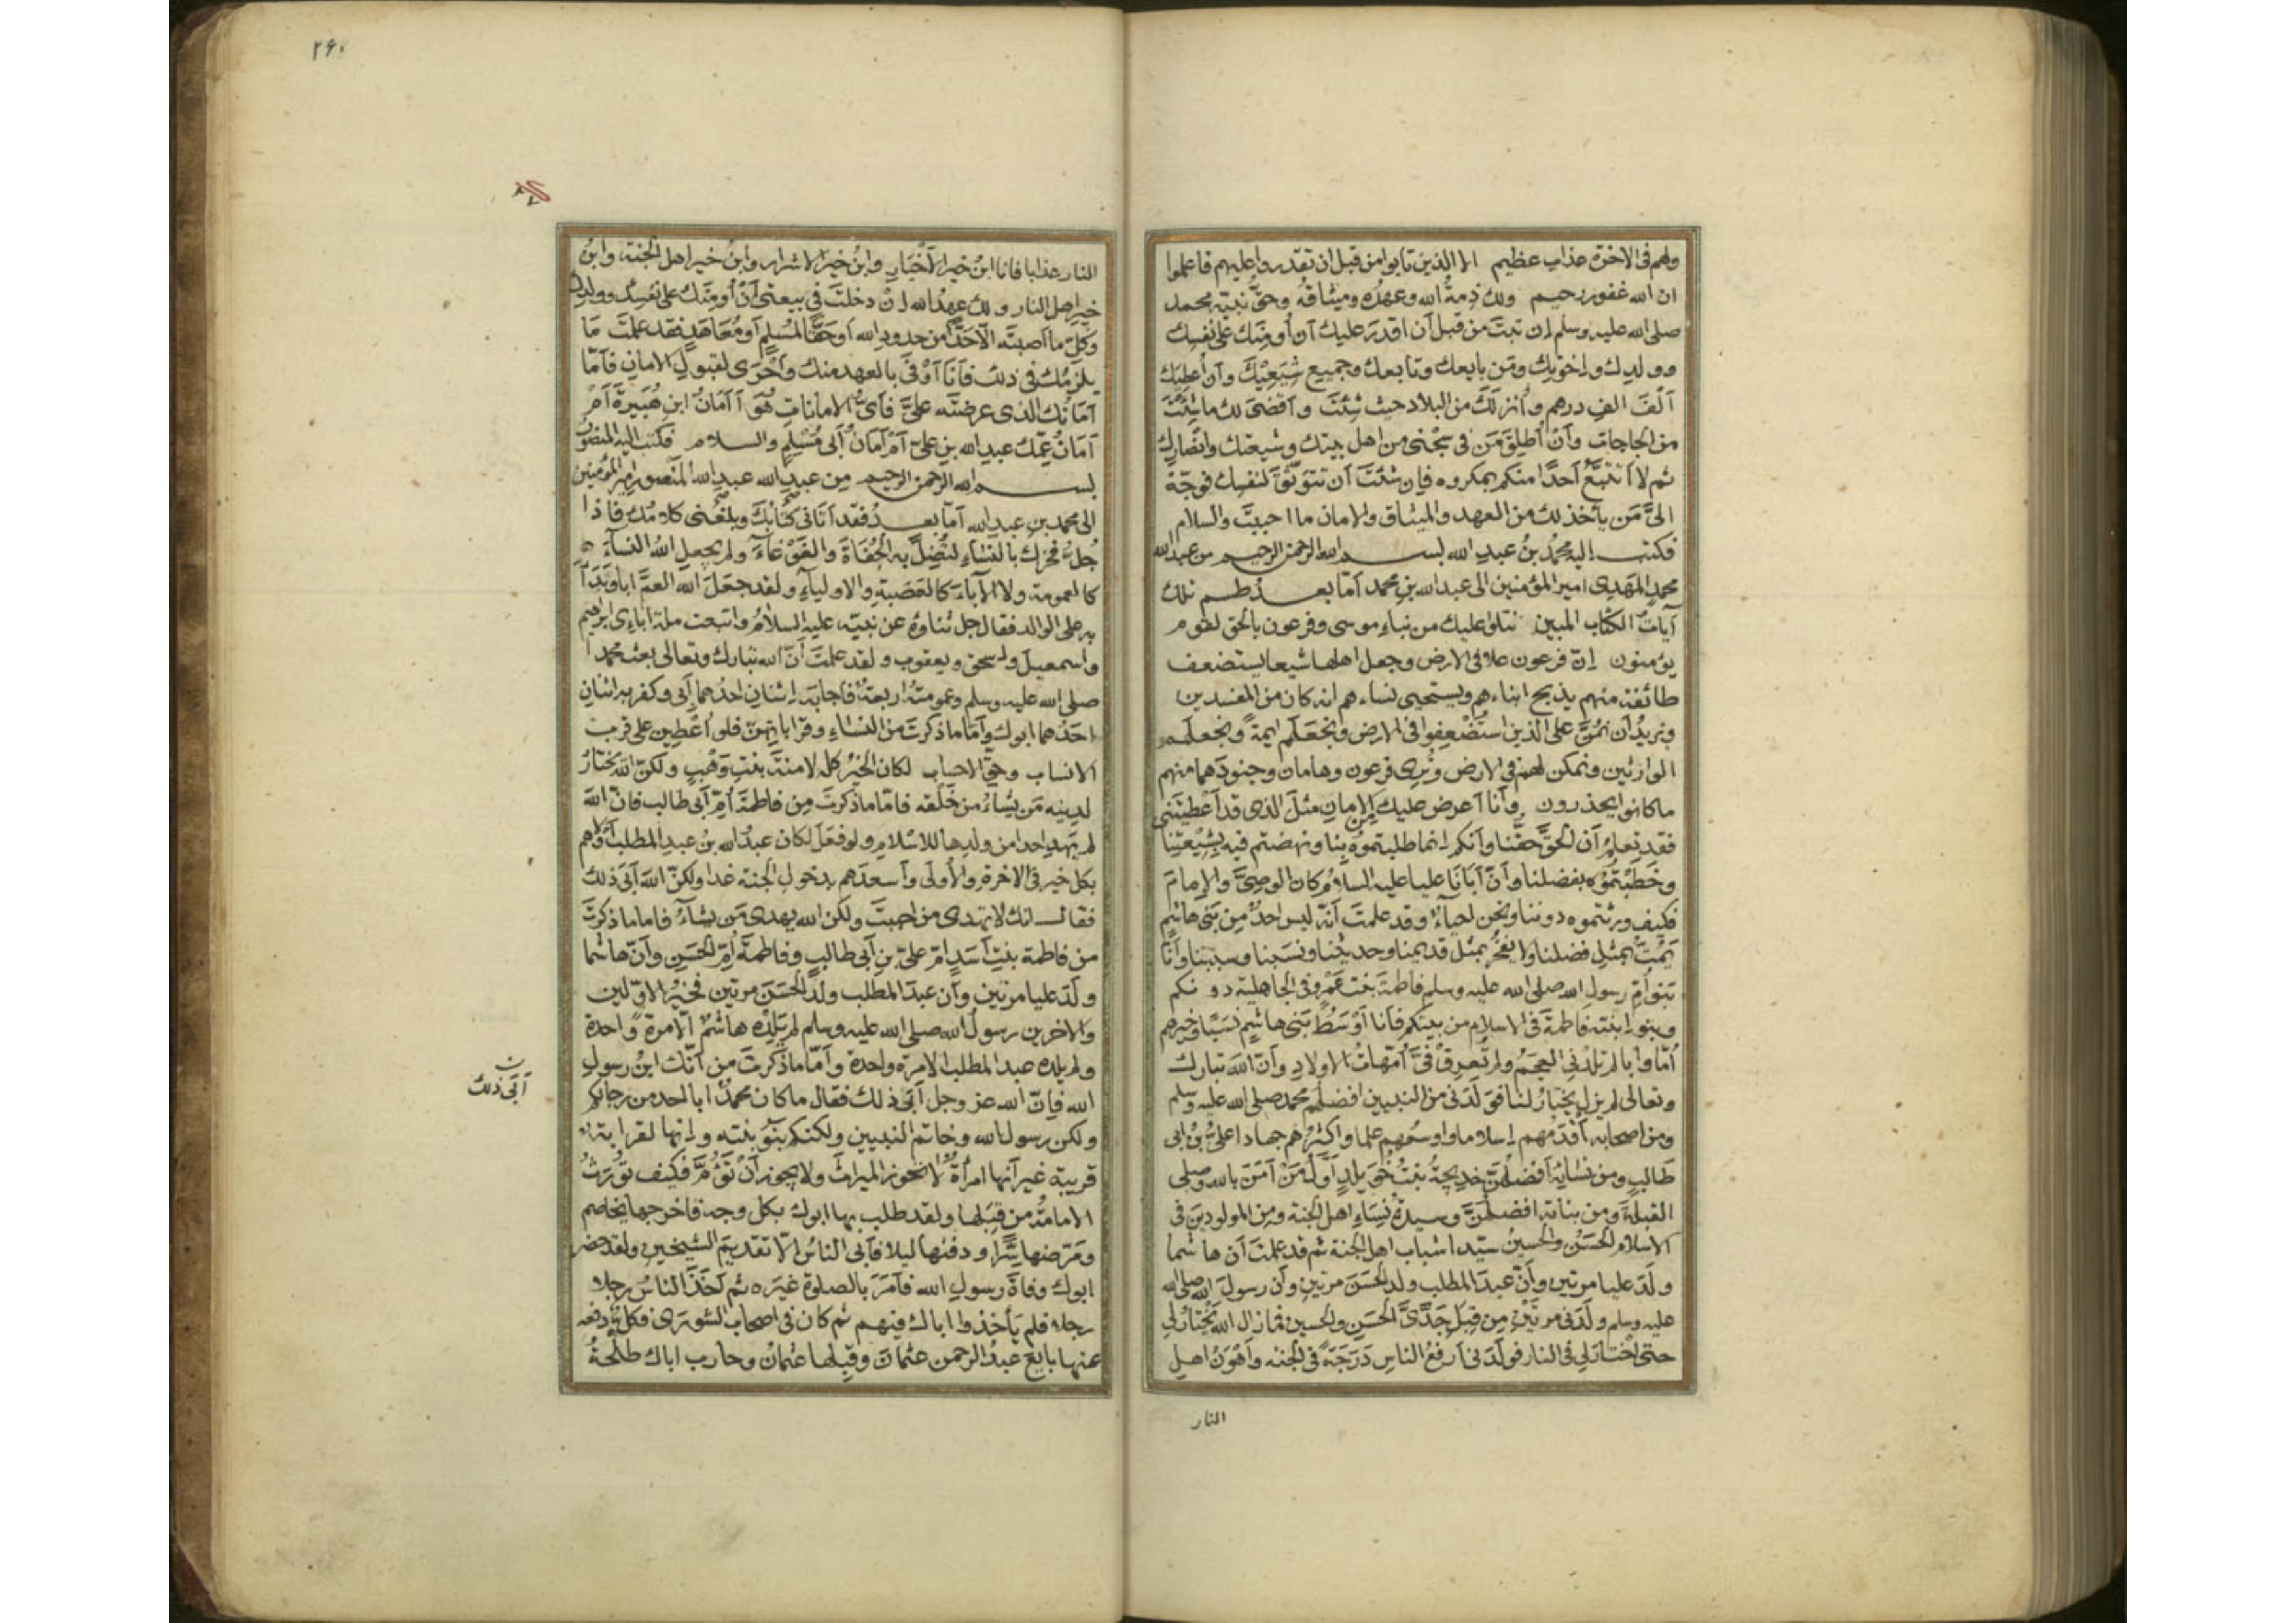 ولهم فى الاخرة عذاب عظيم الا الذين تابوا من قبل ان تقدروا عليهم فاعلموا
ان الله غفور رحيم ولك ذمةُ الله وعهدُه وميثاقُه وحقُّ نبيّه محمد
صلى الله عليه وسلم اِن تبتَ من قبل أن اقدرَ عليك أن أُومنَك على نفسِك
وولدِك واِخوتِك ومَن بايعك وتابعك وجميع شِيَعتِكَ وأن أُعطِيَك
أَلْفَ الفِ درهم وأُنزلَكَ من البلاد حيث شئتَ وأقضىَ لك ما شِئتَ
من الحاجات وأنْ أُطلِقَ مَن فى سِجْنى من اهل بيتك وشيعتك وانصارِك
ثم لا أَتتبَّعُ أحدًا منكم بمكروه فاِن شئتَ أن تتوثّقَ لنفسِك فوجّهْ
الىَّ مَن يأخذ لك من العهد والميثاق والامان ما احببتَ والسلام
فكتب اليه محمدُ بنُ عبدِ الله بسم الله الرحمن الرحيم من عبد الله
محمدٍ المَهْدِى امير المؤمنين الى عبد الله بنِ محمد أمّا بعد طسم تلك
آياتُ الكتاب المبين نتلوا عليك من نباءِ موسى وفرعون بالحق لقوم
يؤمنون اِنّ فرعون علا فى الارض وجعل اهلها شيعا يستضعف
طائفة منهم يذبح ابناءهم ويستحيى نساءهم انه كان من المفسدين
ونريدُ أن نَمُنَّ على الذين استُضعِفوا فى الارض ونجعَلَهم ايمةً ونجعلَهم
الوارثين ونمكن لهم فى الارض ونُرِى فرعون وهامان وجنودَهما منهم
ما كانوا يحذرون وأنا أعرض عليك من الامانِ مثلَ الذى قد أَعْطيتَنى
فقد تعلمُ أن الحقَّ حقّنا وأنكم اِنما طلبتموهُ بِنا ونهضتم فيه بِشِيْعتِنا
وخَطَبْتُمُوْه بفضلنا وأنّ أبانَا عليا عليه السلامُ كان الوصِىَّ والاِمامَ
فكيف ورثتموه دوننا ونحن احياءٌ وقد علمتَ أنّه ليس احدٌ مِن بَنى هاشمٍ
يَمُتُّ بمثلِ فضلِنا ولا يفخَرُ بمثل قديمنا وحديثنا ونَسَبنا وسببنا وأنّا
بَنو أُمِّ رسولِ الله صلى الله عليه وسلم فاطمةَ بنت عَمْرٍو فى الجاهلية دونكم
وبنو اِبنته فاطمةَ فى الاسلام من بينكم فأنا أَوْسَطُ بَنى هاشِمٍ نَسَبًا وخيرهم
أُمًّا وابا لم تلدْنى العجَمُ ولم تُعرِقْ فىَّ أُمّهاتُ الاولادِ وأنّ اللهَ تبارك
وتعالى لم يزل يَختارُ لنا فوَلَدَنى من النبيين افضلُهم محمد صلى الله عليه وسلم
ومن اصحابه أقدمُهم اِسلاما واوسعُهم علما واكثرُهم جهادا علىُّ بْنُ ابى
طَالبٍ ومن نسائِه أفضلُهنَّ خديجةُ بنتُ خُوَيلِدٍ أوّلُ مَنْ آمَنَ بالله وصلى
القبلةَ ومن بناته افضلُهنَّ وسيدةُ نِسَاءِ اهل الجنة ومن المولودِينَ فى
الاسلام الحَسَنُ والحسينُ سيّدا شباب اهل الجنة ثم قد علمتَ أن هاشما
ولَدَ عليا مرتين وأنّ عبدَ المطلب ولد الحَسَنَ مرتين وأن رسولَ الله صلى الله
عليه وسلم ولَدَنى مرتَيْنِ مِن قِبَلِ جَدَّىَّ الحَسَنِ والحسينِ فما زال اللهُ يَخْتارُ لى
حتى اخْتارَ لى فى النار فولَدَنى أرفعُ الناسِ دَرَجَةً فى الجنه وأهْوَنُ اهل
النار
٢٦٠
النار عذابا فانا ابنُ خيرِ الأخْيَارِ وابنُ خيرِ الاشرار وابنُ خير اهل الجنة وابنُ
خيرِ اهل النار ولك عهدُ الله اِنْ دخلتَ فى بيعتى أنْ أُومِنَكَ على نفسِك وولدِك
وكلِّ ما أصبتَه الّا حَدًّا من حدودِ الله أو حقًّا لمُسْلِمٍ أو مُعَاهَدٍ فقد علمتَ مَا
يلزمُكَ فى ذلك فأنَا أَوْفَى بالعهد منك وأَحْرَى لقبولِ الامانِ فأمّا
أمَانُك الذى عرضتَه علىَّ فأىُّ الامانات هُوَ أأمَانُ ابنِ هُبَيرةَ أَمْ
أمَانُ عمِّك عبدِ الله بنِ علىّ أمْ أمَانُ أبى مُسْلِمٍ والسلام فكتب اليه المنصورُ
بسم الله الرحمن الرحيم مِن عبدِ الله عبدِ الله المَنصورِ امير المؤمنين
الى محمدِ بنِ عبدِ الله أما بعدُ فقد أتانى كتابُكَ وبلغَنى كلامُك فاذا
جُلُّ فخرِك بالنساءِ لتُضِلَّ به الجُفَاةَ والغَوْغاءَ ولم يجعلِ اللهُ النساءَ
كالعمومة ولا الآباءَ كالعَصَبةِ والاولياءِ ولقد جعَلَ الله العمَّ ابا وبَدَأَ
به على الوالد فقال جل ثناؤهُ عن نبيّه عليه السلامُ واتبعت ملة اباءى ابرهيم
واسمعيلَ واِسحقَ ويعقوب ولقد علمتَ أنّ الله تبارك وتعالى بعث محمدا
صلى الله عليه وسلم وعمومتُه اربعةٌ فاجابَه اِثنانِ احدُهما أبى وكفر به اثنانِ
احَدُهما ابوك وأمّا ما ذكرتَ من النساءِ وقراباتِهنّ فلو اُعْطِين على قرب
الانساب وحقِّ الاحساب لكان الخيرُ كله لامنةَ بنتِ وَهْبٍ ولكنّ اللهَ يختارُ
لدينِه مَن يشاءُ من خَلْقه فامّا ما ذكرتَ مِن فاطمةَ أُمِّ أبى طالب فانّ اللهَ
لم يَهدِ احدا من ولدِها للاسْلامِ ولو فعَلَ لكان عبدُ الله بنُ عبدِ المطلب أولاهم
بكل خير فى الاخرةِ والأُولى وأسعدَهم بدخولِ الجنة غدا ولكنّ اللهَ أبَى ذلك
فقال انك لا تهدى من احببتَ ولكن الله يهدى مَن يشاءُ فاما ما ذكرتَ
من فاطمة بنتِ أسَدٍ امِّ علىّ بنِ أبى طالبٍ وفاطمةَ أُمِّ الحسَينِ وأنّ هاشما
ولَدَ عليا مرتين وأن عبدَ المطلب ولَدَ الحَسَنَ مرتين فخيرُ الاوّلين
والاخرين رسولُ الله صلى الله عليه وسلم لم يَلِدْه هاشمٌ الّا مرة واحدة
ولم يلده عبد المطلب الا مرة واحدة وأمّا ما ذكرتَ من أنّك ابنُ رسولِ
الله فاِنّ الله عز وجل أبَى ذلك فقال ما كان محمدٌ ابا احد من رجالكم
ولكن رسول الله وخاتم النبيين ولكنكم بَنو بنته وانها لقرابة
قريبة غير أنها امرأةٌ لا تحوز الميراثَ ولا يجوز أنْ تَؤُمَّ فكيف تُوْرَثُ
الامامةُ من قِبَلها ولقد طلب بها ابوك بكل وجه فاخرجها تخاصم
ومَرّضها سِرًّا ودفنها ليلا فأبى الناسُ اِلّا تقديمَ الشيخين ولقد حضر
ابوك وفاةَ رسولِ الله فأمَرَ بالصلوة غيرَه ثم أخَذَ الناسُ رجلا
رجلا فلم يَأخذوا اباك فيهم ثم كان فى اصحاب الشورَى فكلٌّ دفعه
عنها بايَعَ عبدُ الرحمن عثمانَ وقَبِلها عثمانُ وحارب اباك طلحةُ
أبَى ذلك